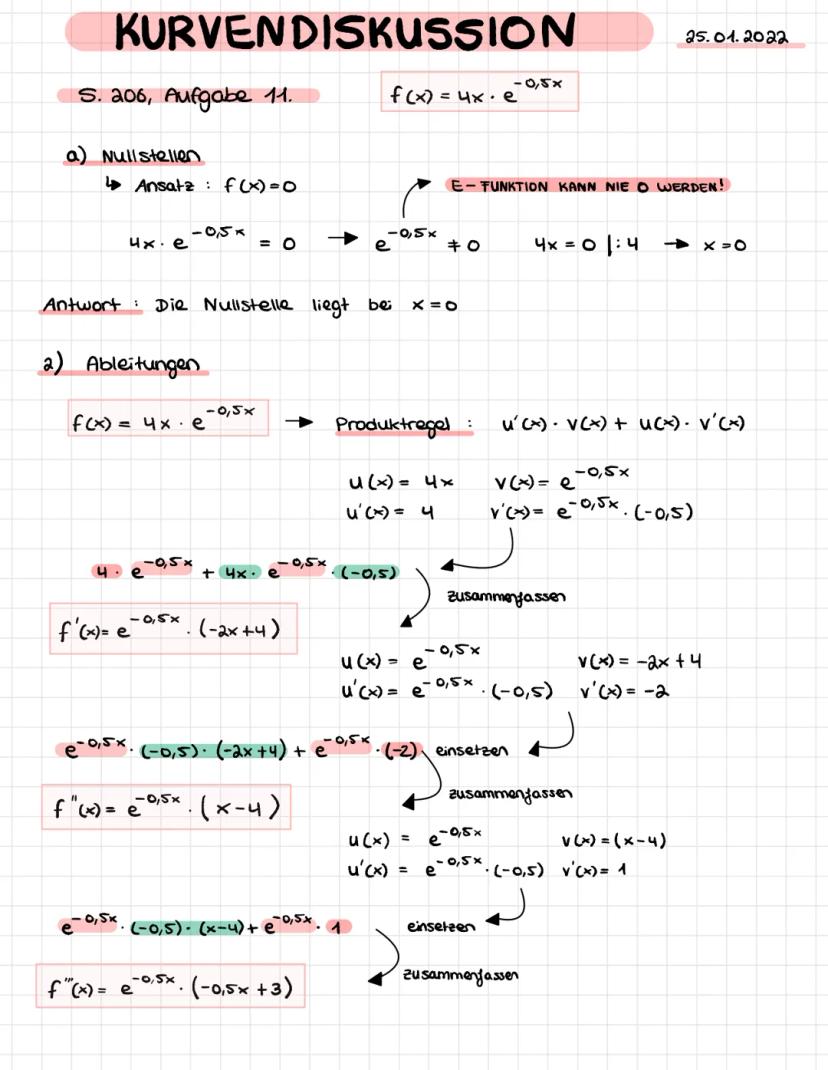 KURVENDISKUSSION
25.01.2022
S. 206, Aufgabe 11.
f(x) = 4x · e^-0,5x
a) Nullstellen
↳ Ansatz : f(x)=0
E-FUNKTION KANN NIE 0 WERDEN!
4x · e^-0,5x = 0 → e^-0,5x ≠ 0 4x = 0 |:4 → x=0
Antwort : Die Nullstelle liegt bei x=0
2) Ableitungen
f(x) = 4x · e^-0,5x → Produktregel : u'(x) · v(x) + u(x) · v'(x)
u(x) = 4x v(x) = e^-0,5x
u'(x) = 4 v'(x) = e^-0,5x · (-0,5)
4 · e^-0,5x + 4x · e^-0,5x · (-0,5)
zusammenfassen
f'(x) = e^-0,5x · (-2x+4)
u(x) = e^-0,5x v(x) = -2x+4
u'(x) = e^-0,5x · (-0,5) v'(x) = -2
e^-0,5x · (-0,5) · (-2x+4) + e^-0,5x · (-2) einsetzen
zusammenfassen
f''(x) = e^-0,5x · (x-4)
u(x) = e^-0,5x v(x) = (x-4)
u'(x) = e^-0,5x · (-0,5) v'(x) = 1
e^-0,5x · (-0,5) · (x-4) + e^-0,5x · 1 einsetzen
zusammenfassen
f'''(x) = e^-0,5x · (-0,5x+3)